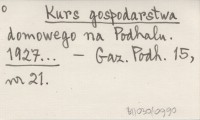 Kurs gospodarstwa
domowego na Podhalu.
1927... — Gaz. Podh. 15,
nr 21.